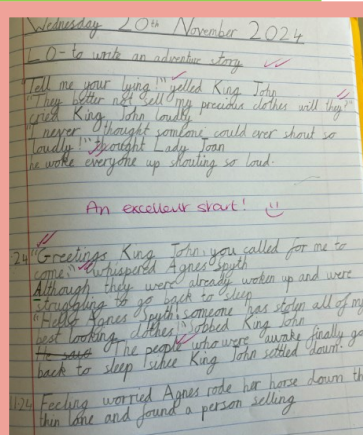 Wednesday 20th November 2024
LO- to write an adventure story
"Tell me your lying!" yelled King John
"They better not sell my precious clothes will they?"
cried King John loudly
"I never thought someone could ever shout so
loudly!" thought Lady Joan
he woke everyone up shouting so loud.
An excellent start!
"Greetings King John, you called for me to
come," whispered Agnes Spyth
Although they were already woken up and were
struggling to go back to sleep
"Hello Agnes Spyth, someone has stolen all of my
best looking clothes" sobbed King John
He said The people who were awake finally go
back to sleep since King John settled down.
Feeling worried Agnes rode her horse down the
thin lane and found a person selling